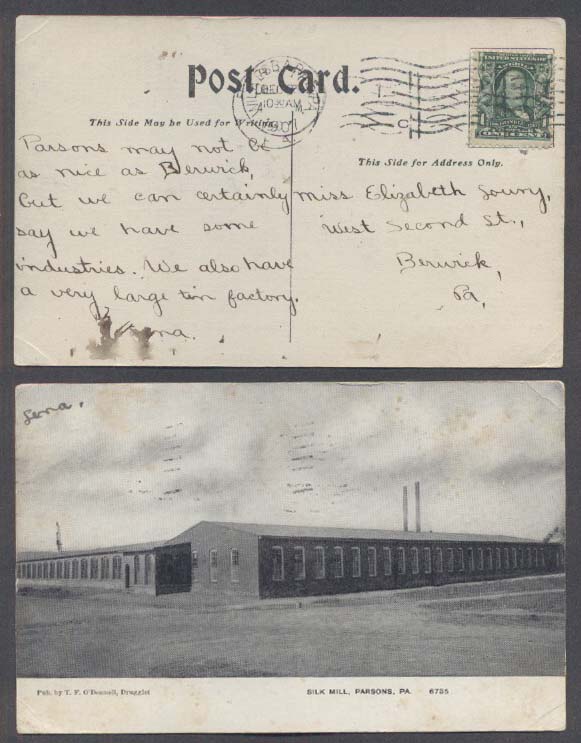 Post Card.
This Side May be Used for Writing.
This Side for Address Only.
DEC
10 30 AM
1907
UNITED STATES OF
ONE CENT
Parsons may not be
as nice as Berwick,
but we can certainly
say we have some
industries. We also have
a very large tin factory.
Miss Elizabeth
West Second St.,
Berwick,
Pa,
Lena,
Pub. by T. F. O'Donnell, Druggist
SILK MILL, PARSONS, PA. 6755